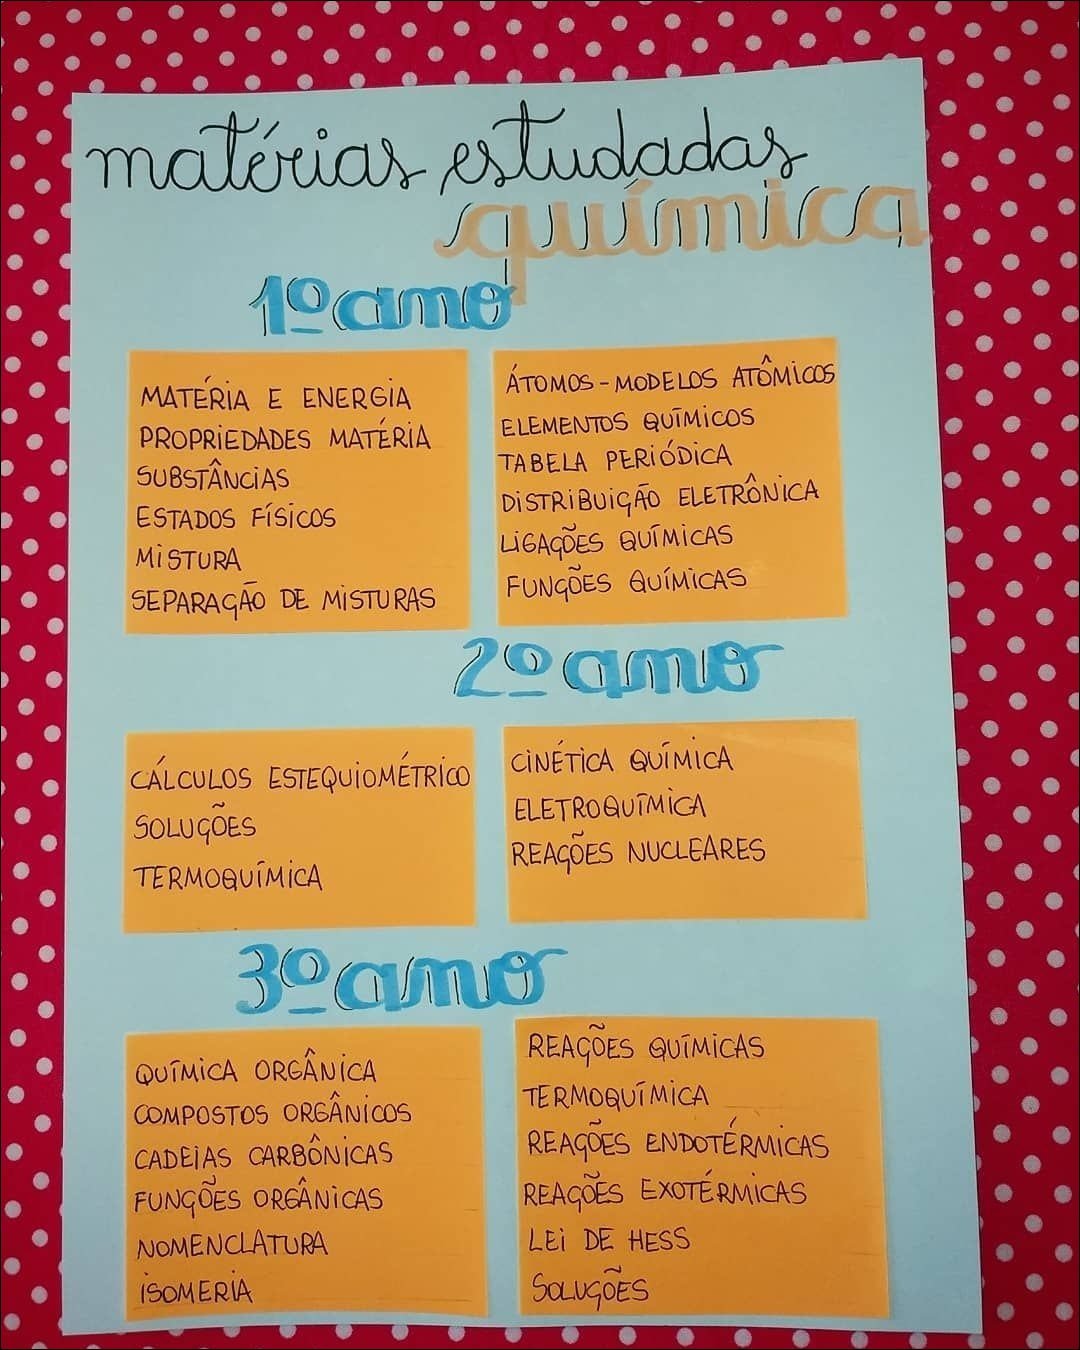 matérias estudadas
química
1º ano
MATÉRIA E ENERGIA
PROPRIEDADES MATÉRIA
SUBSTÂNCIAS
ESTADOS FÍSICOS
MISTURA
SEPARAÇÃO DE MISTURAS
ÁTOMOS - MODELOS ATÔMICOS
ELEMENTOS QUÍMICOS
TABELA PERIÓDICA
DISTRIBUIÇÃO ELETRÔNICA
LIGAÇÕES QUÍMICAS
FUNÇÕES QUÍMICAS
2º ano
CÁLCULOS ESTEQUIOMÉTRICO
SOLUÇÕES
TERMOQUÍMICA
CINÉTICA QUÍMICA
ELETROQUÍMICA
REAÇÕES NUCLEARES
3º ano
QUÍMICA ORGÂNICA
COMPOSTOS ORGÂNICOS
CADEIAS CARBÔNICAS
FUNÇÕES ORGÂNICAS
NOMENCLATURA
ISOMERIA
REAÇÕES QUÍMICAS
TERMOQUÍMICA
REAÇÕES ENDOTÉRMICAS
REAÇÕES EXOTÉRMICAS
LEI DE HESS
SOLUÇÕES